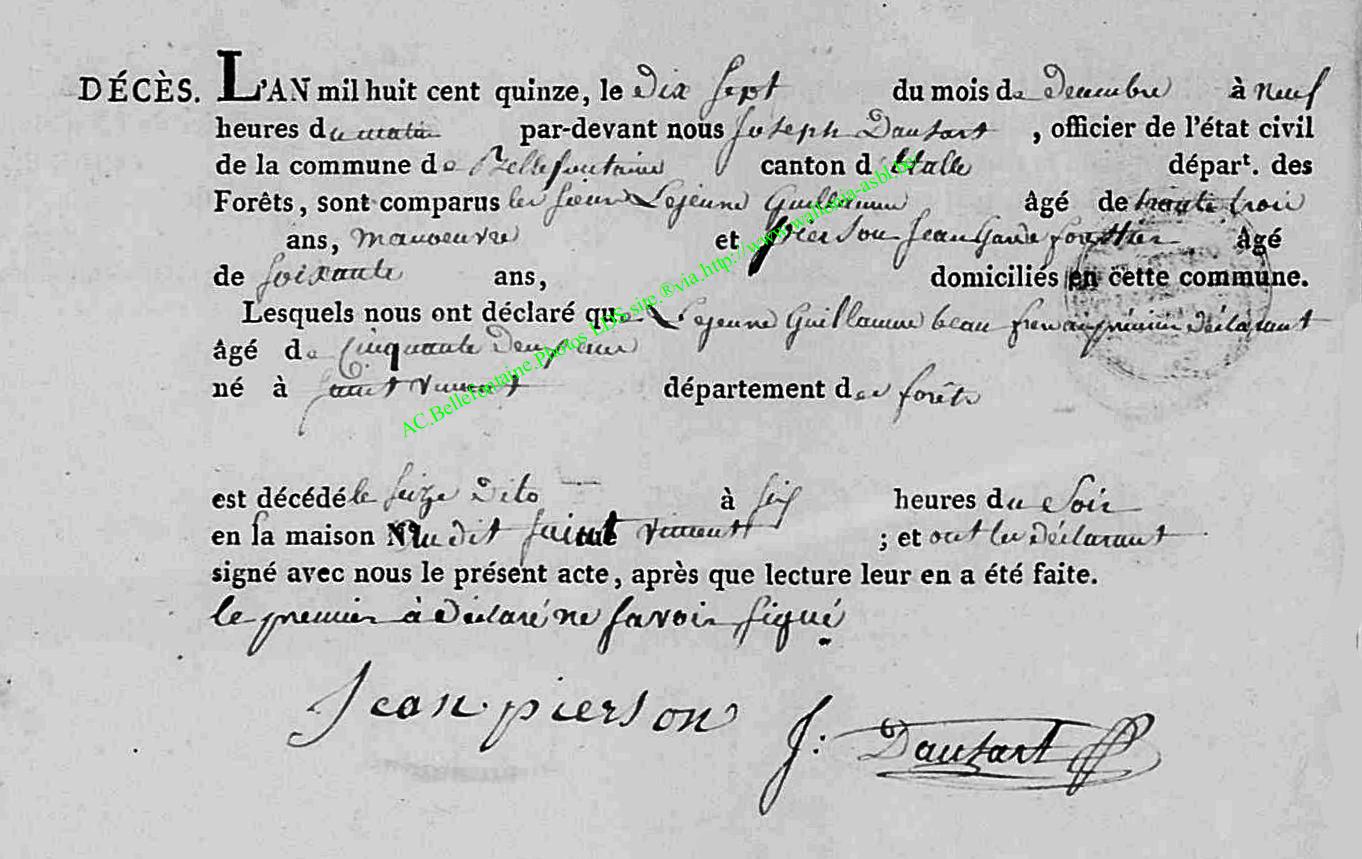 DÉCÈS. L'AN mil huit cent quinze, le Dix Sept du mois de Decembre à neuf
heures du matin par-devant nous Joseph Dautart, officier de l'état civil
de la commune de Bellefontaine canton d'Etalle départ. des
Forêts, sont comparus les sieur Lejeune Guillaume âgé de trente trois
ans, manoeuvre et Pierson Jean Garde forettier âgé
de soixante ans, domiciliés en cette commune.
Lesquels nous ont déclaré que Lejeune Guillaume beau frere au premier déclarant
âgé de Cinquante Deux ans
né à saint Vincent département des forêts
est décédé le seize Dito à six heures du Soir
en sa maison au dit saint Vincent; et ont les Déclarant
signé avec nous le présent acte, après que lecture leur en a été faite.
le premier à Déclaré ne savoir signé
Jean pierson J: Dautart
AC.Bellefontaine.Photos LDS site.®via.http://www.wallonia-asbl.be